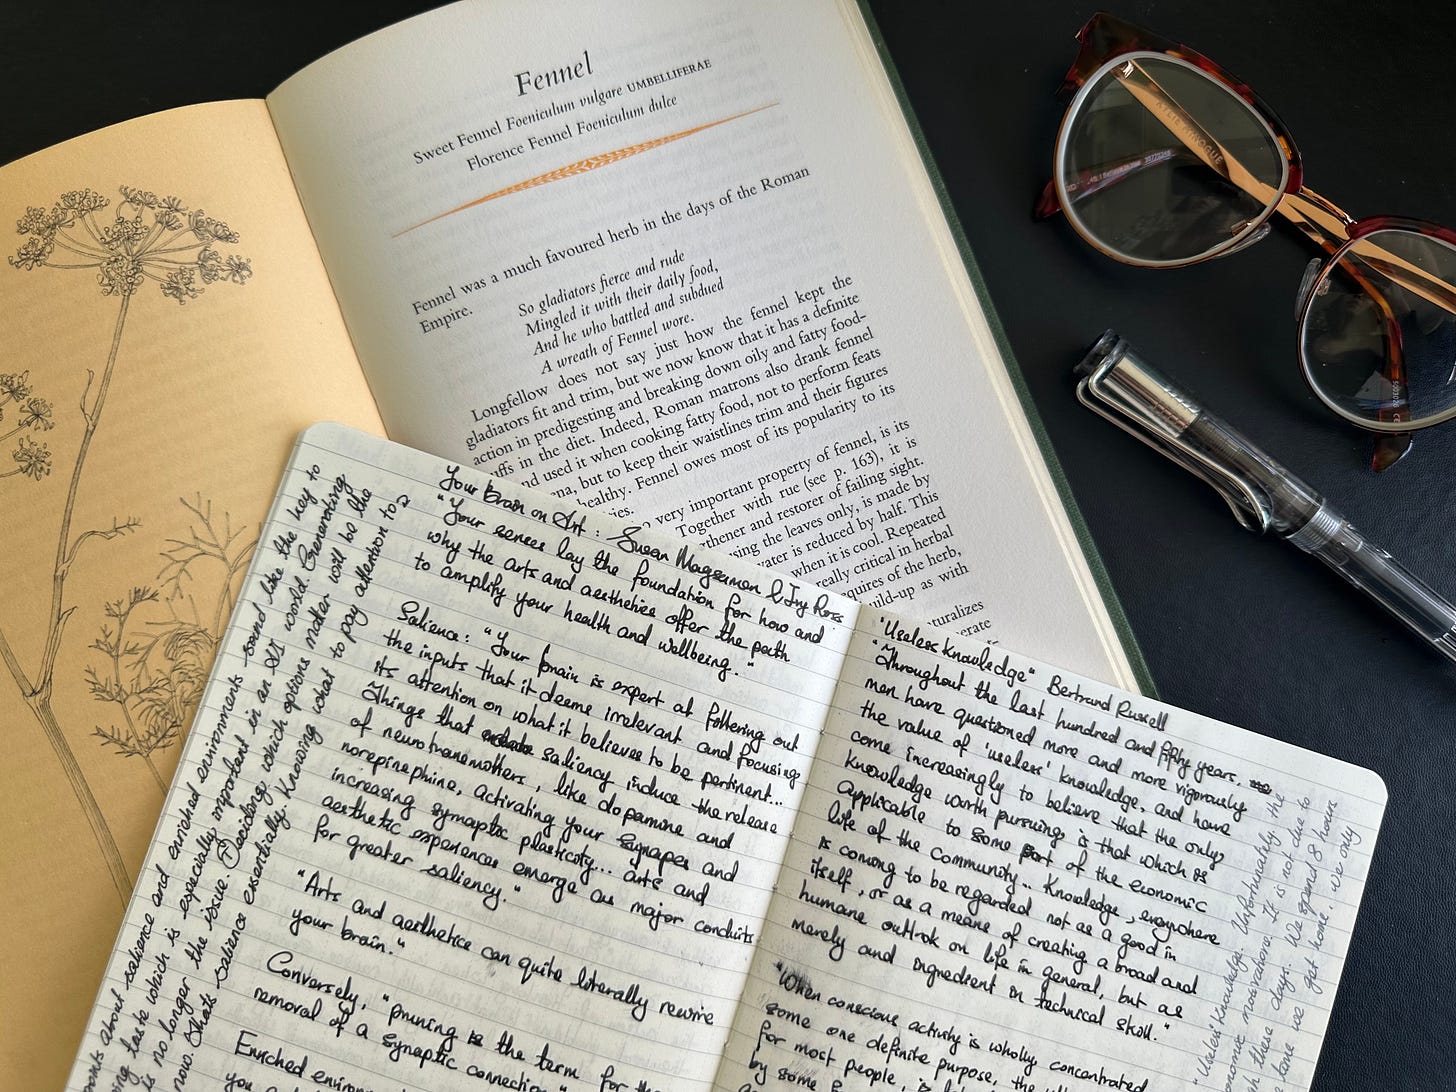 Fennel
Sweet Fennel Foeniculum vulgare UMBELLIFERAE
Florence Fennel Foeniculum dulce
Fennel was a much favoured herb in the days of the Roman
Empire.
So gladiators fierce and rude
Mingled it with their daily food,
And he who battled and subdued
A wreath of Fennel wore.
Longfellow does not say just how the fennel kept the
gladiators fit and trim, but we now know that it has a definite
action in predigesting and breaking down oily and fatty food-
uffs in the diet. Indeed, Roman matrons also drank fennel
nd used it when cooking fatty food, not to perform feats
ena, but to keep their waistlines trim and their figures
healthy. Fennel owes most of its popularity to its
ies.
very important property of fennel, is its
Together with rue (see p. 163), it is
gthener and restorer of failing sight.
sing the leaves only, is made by
vater is reduced by half. This
when it is cool. Repeated
really critical in herbal
quires of the herb,
uild-up as with
turalizes
erate
KYLIE MINOGUE
Your brain on Art: Susan Magsamen & Ivy Ross
"Your senses lay the foundation for how and
why the arts and aesthetics offer the path
to amplify your health and wellbeing."
Salience: "Your brain is expert at filtering out
the inputs that it deems irrelevant and focusing
its attention on what it believes to be pertinent...
Things that saliency induce the release
of neurotransmitters, like dopamine and
norepinephrine, activating your synapses and
increasing synaptic plasticity... arts and
aesthetic experiences emerge as major conduits
for greater saliency."
"Arts and aesthetics can quite literally rewire
your brain."
Conversely, "pruning is the term for the
removal of a synaptic connection"
Enriched environ
you
points about salience and enriched environments sound like the key to
ing taste which is especially important in an AI world. Generating
is no longer the issue. Deciding which options matter will be the
now. Thats salience essentially. Knowing what to pay attention to?
"Useless Knowledge" Bertrand Russell
"Throughout the last hundred and fifty years,
men have questioned more and more vigorously
the value of 'useless' knowledge, and have
come increasingly to believe that the only
knowledge worth pursuing is that which is
applicable to some part of the economic
life of the community.. Knowledge, everywhere
is coming to be regarded not as a good in
itself, or as a means of creating a broad and
humane outlook on life in general, but as
merely and ingredient in technical skill."
"When conscious activity is wholly concentrated
some one definite purpose, the
for most people, is
by some
"Useless Knowledge. Unfortunately, the
economic motivations. It is not due to
in these days. We spend 8 hours
time we get home. We only